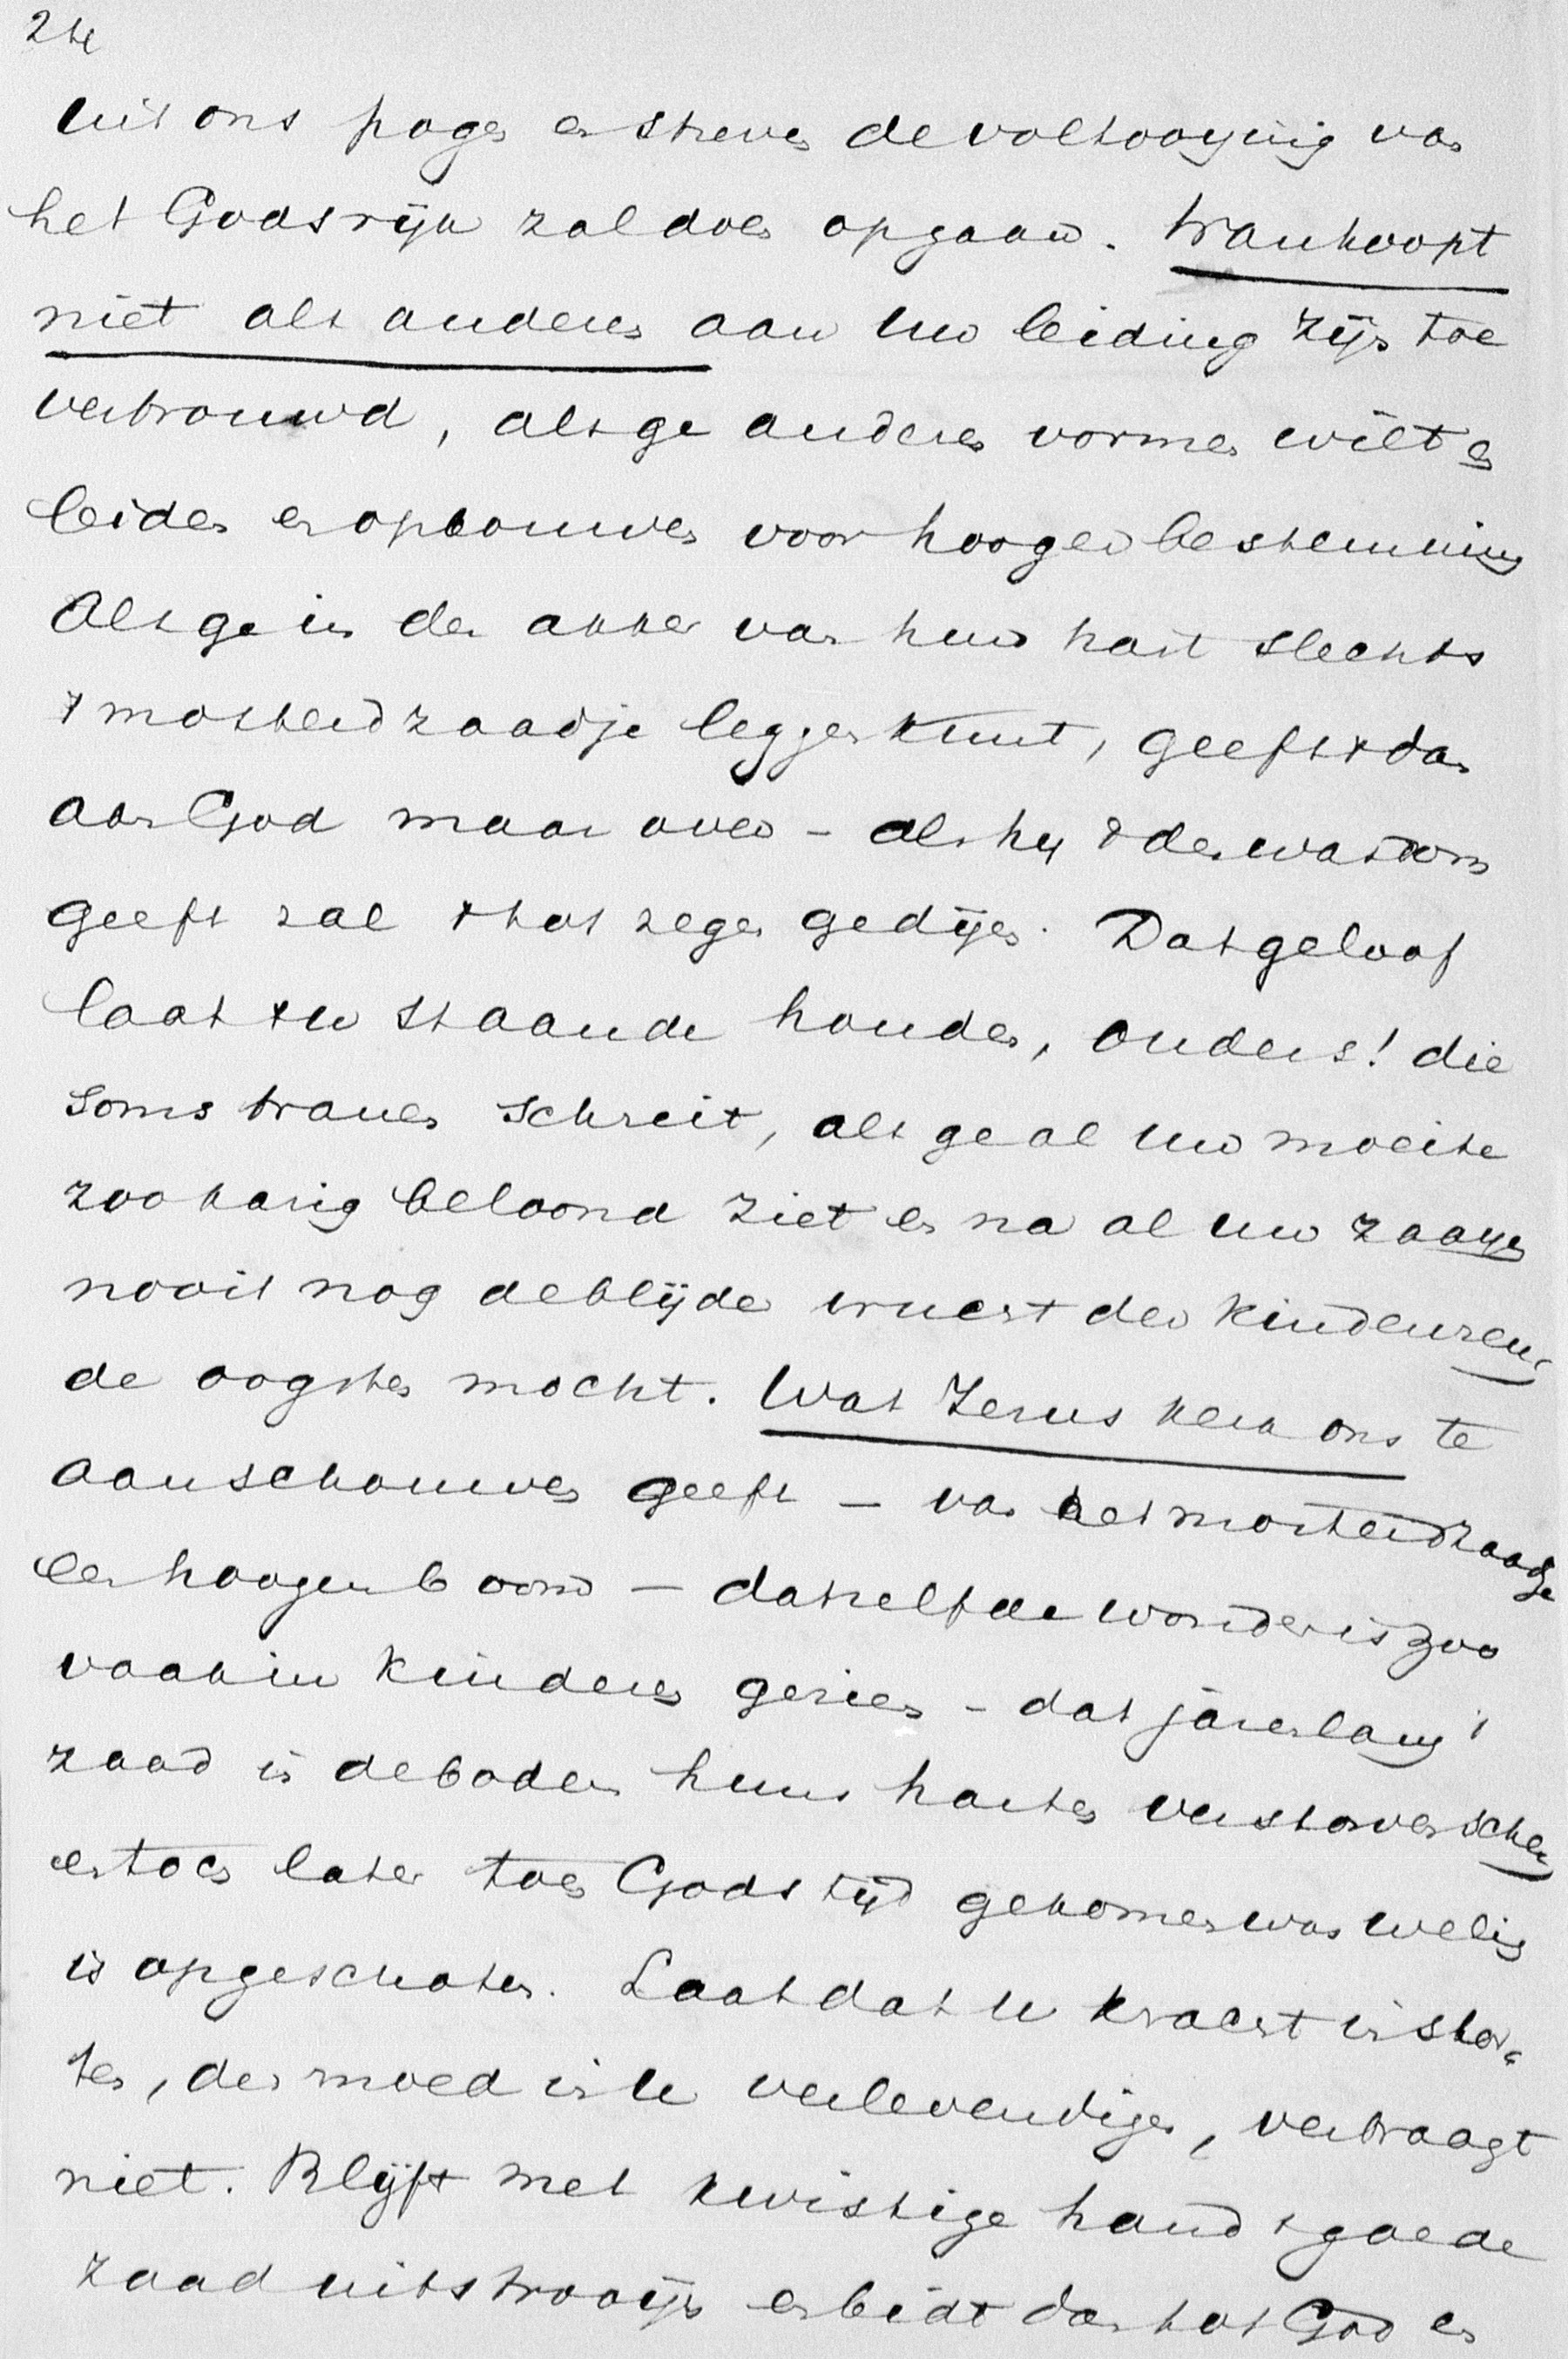 24
uit ons pogen en streven de voltooying van
het Godsrijk zal doen opgaan. Wanhoopt
niet als anderen aan uw leiding zijn toe
vertrouwd, als ge anderen vormen wilt en
leiden en opbouwen voor hooger bestemming
Als ge in den akker van hun hart slechts
't mosterdzaadje leggen kunt, geeft 't dan
aan God maar over - als hy 't den wasdom
geeft zal 't tot zegen gedijen. Dat geloof
laat 't u staande houden, ouders! die
soms tranen schreit, als ge al uw moeite
zoo karig beloond ziet en na al uw zaayen
nooit nog de blijde vrucht der kinderziel
de oogsten mocht. Wat Jezus kerk ons te
aanschouwen geeft - van het mosterdzaadje
een hoogen boom - datzelfde wonder is zoo
vaak in kinderen gezien - dat jarenlang 't
zaad in de bodem huns harten verstorven scheen
en toch later toen Gods tijd gekomen was welig
is opgeschoten. Laat dat u kracht in stor-
ten, den moed in u verlevendigen, vertraagt
niet. Blijft met kwistige hand 't goede
zaad uitstrooijen en bidt dan tot God en